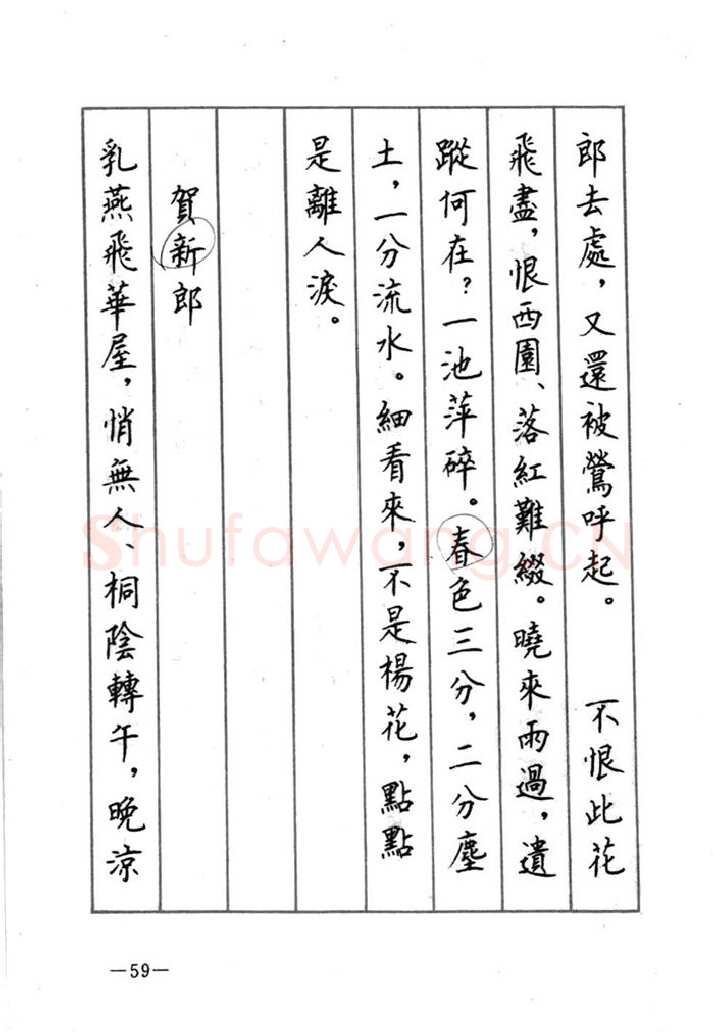 郎去處，又還被鶯呼起。 不恨此花
飛盡，恨西園、落紅難綴。曉來雨過，遺
蹤何在？一池萍碎。春色三分，二分塵
土，一分流水。細看來，不是楊花，點點
是離人淚。
賀新郎
乳燕飛華屋，悄無人、桐陰轉午，晚涼
Shufawang.CN
—59—